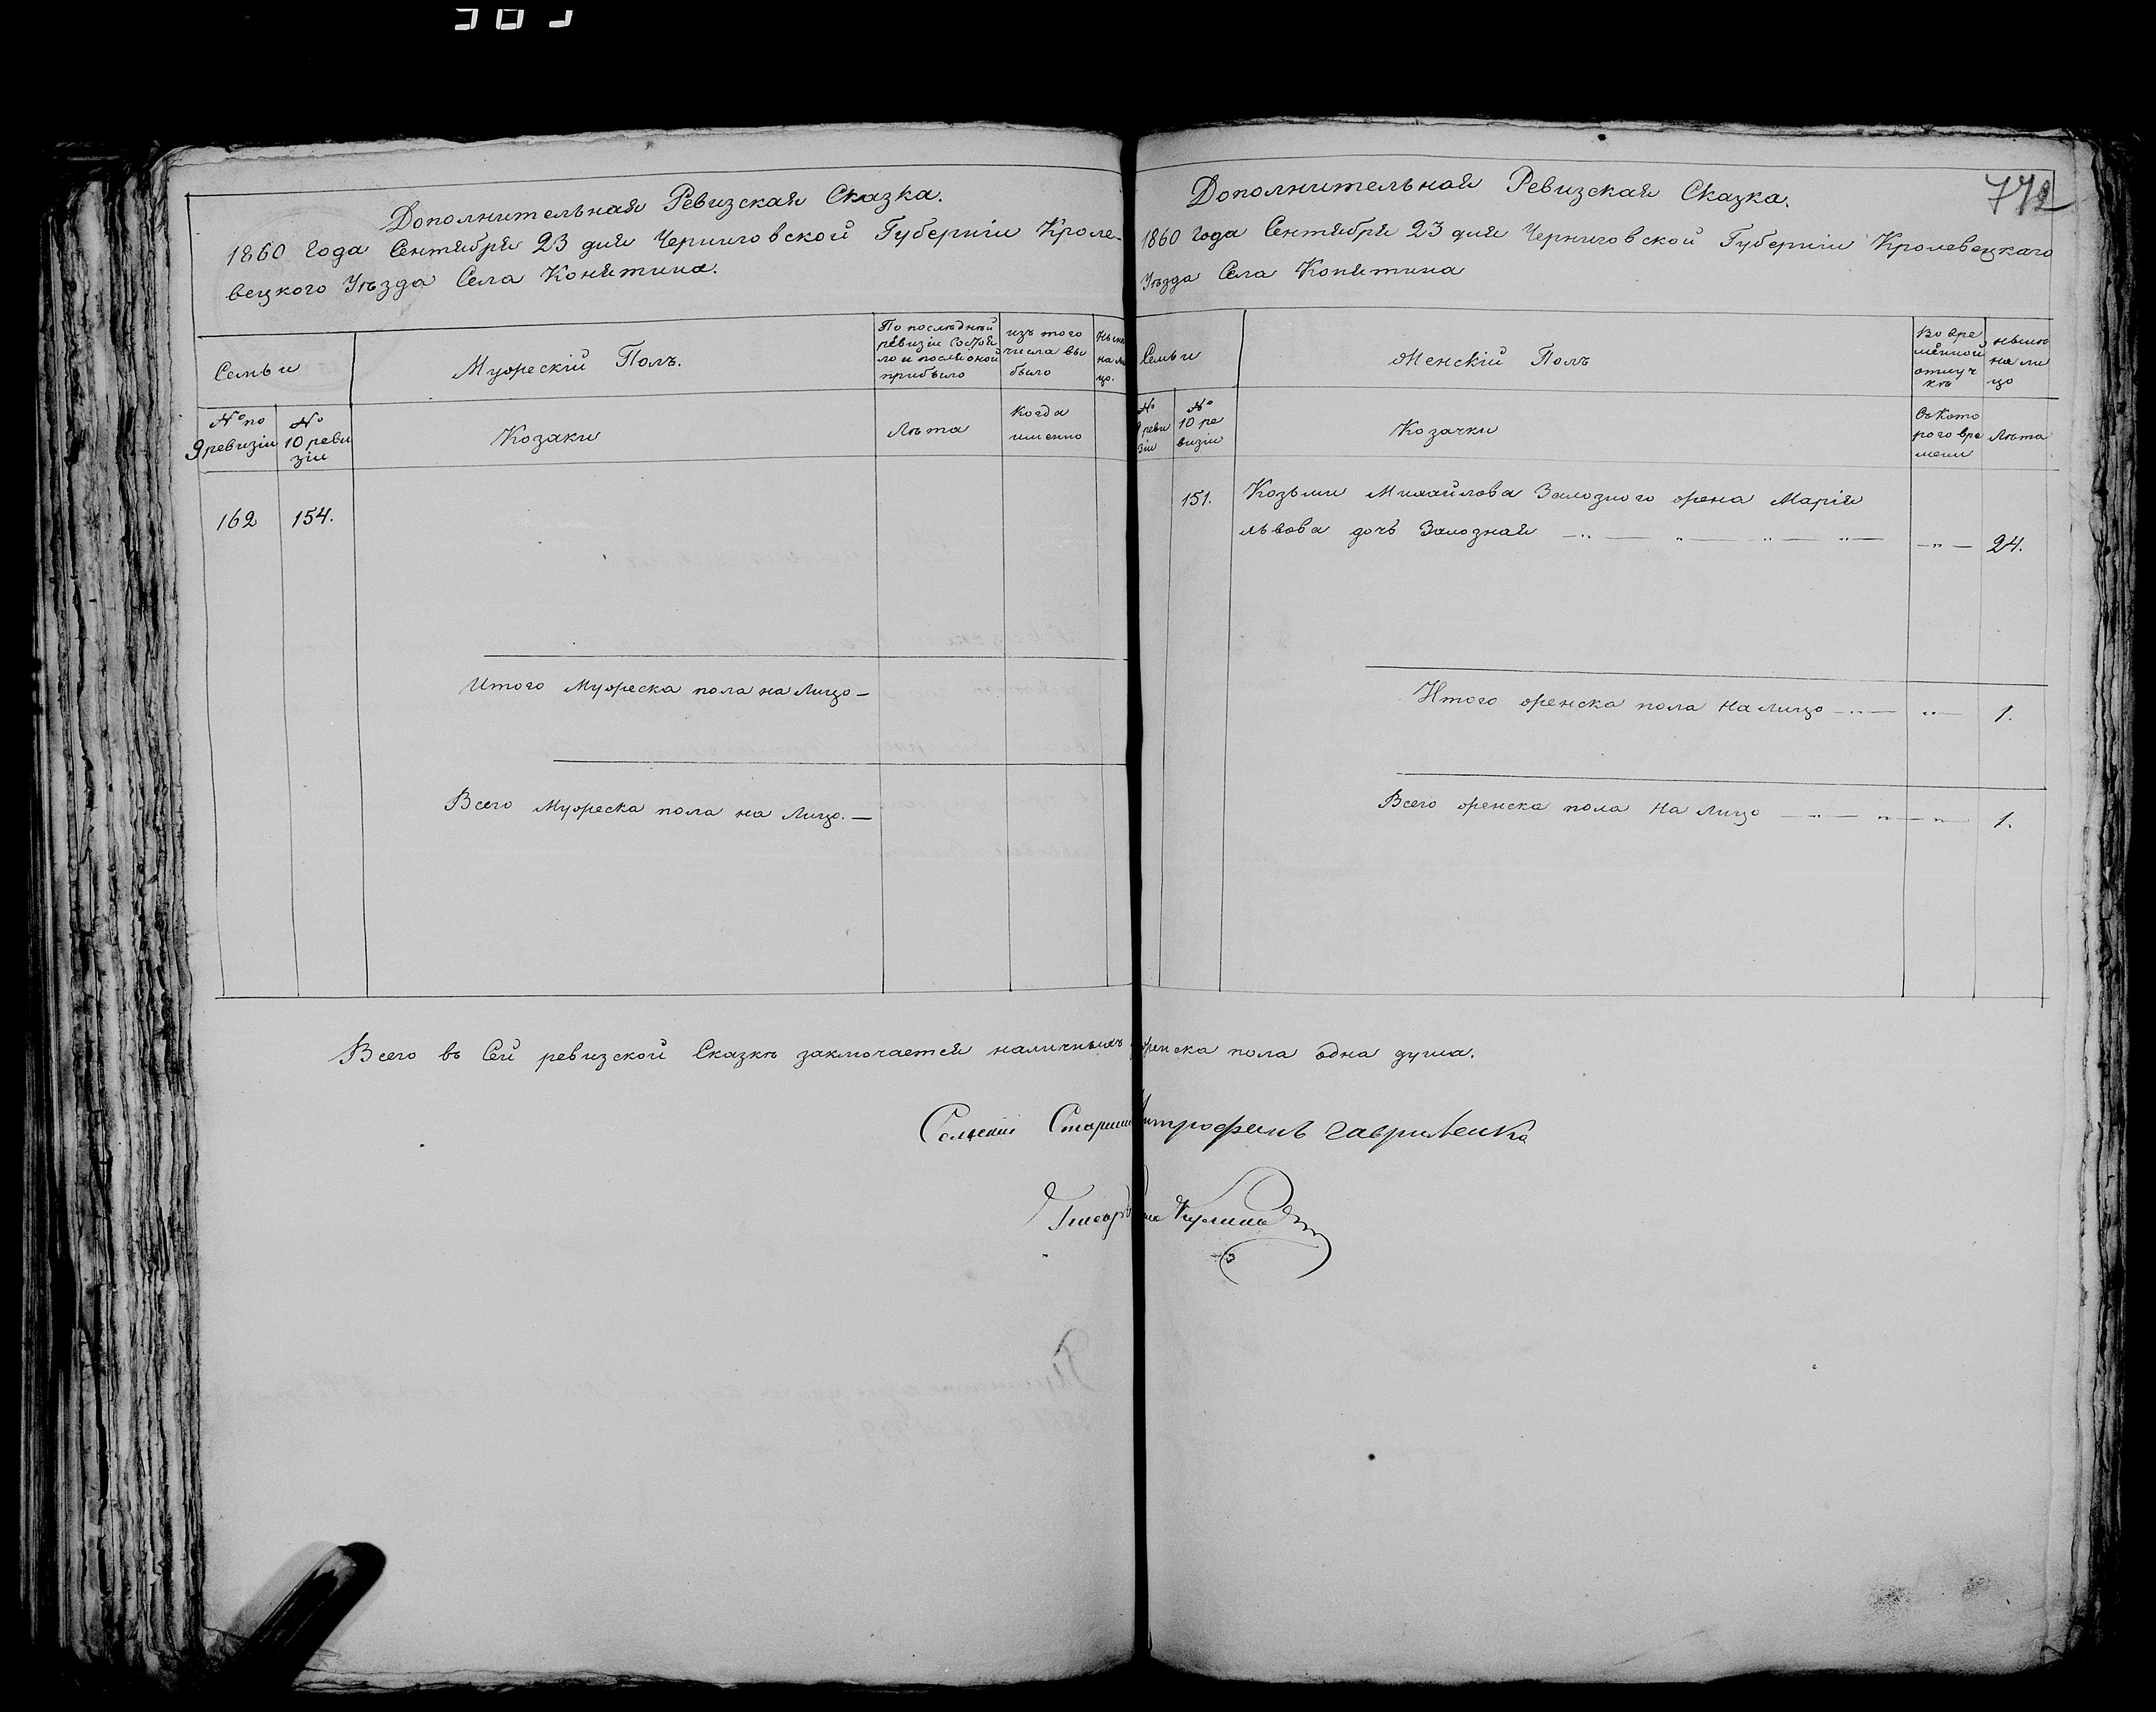 Дополнительная Ревизская Сказка.
1860 года Сентября 23 дня Черниговской Губерніи Кроле-
вецкого Уѣзда Села Конятина.
Семьи
Мужескій Полъ.
По послѣдней
ревизіи состоя
ло и после оной
прибыло
изъ того
числа вы
было
на ли
цо.
№ по
9 ревизіи
№
10 реви
зіи
Козаки
Лѣта
Когда
именно
162 154.
Итого Мужеска пола на лицо —
Всего Мужеска пола на лицо. —
772
Дополнительная Ревизская Сказка.
1860 года Сентября 23 дня Черниговской Губерніи Кролевецкаго
Уѣзда Села Конятина
Семьи
Женскій Полъ
Во вре
менной
отлуч
кѣ
нынѣ
на ли
цо
№
9 реви
зіи
№
10 ре
визіи
Козачки
Съ кото
рого вре
мени
Лѣта
151. Козьми Михайлова Залозного жена Марія
Львова дочь Залозная — " — " — " — " — — " — 24.
Итого женска пола на лицо — " — " — 1.
Всего женска пола на лицо — " — " — " — 1.
Всего въ сей ревизской Сказкѣ заключается наличныхъ женска пола одна душа.
Сельскій Старши Митрофанъ Гавриленко
Писарь